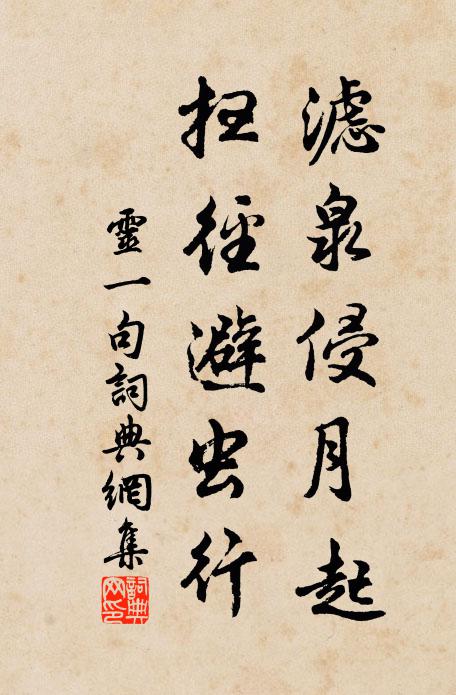 濾泉侵月起
掃徑避虫行
靈一句詞典網集
詞典网印